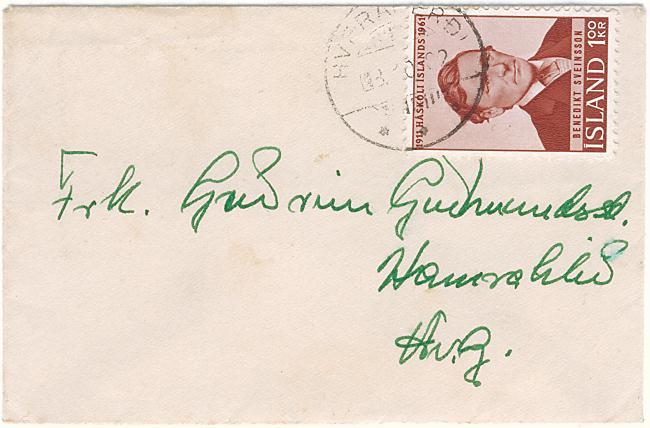 HVERAGERÐI
1911 HÁSKÓLI ÍSLANDS 1961
BENEDIKT SVEINSSON
ÍSLAND 1.00 KR
Frk. Guðrún Guðmundsd.
Hamrahlíð
Hv.g.